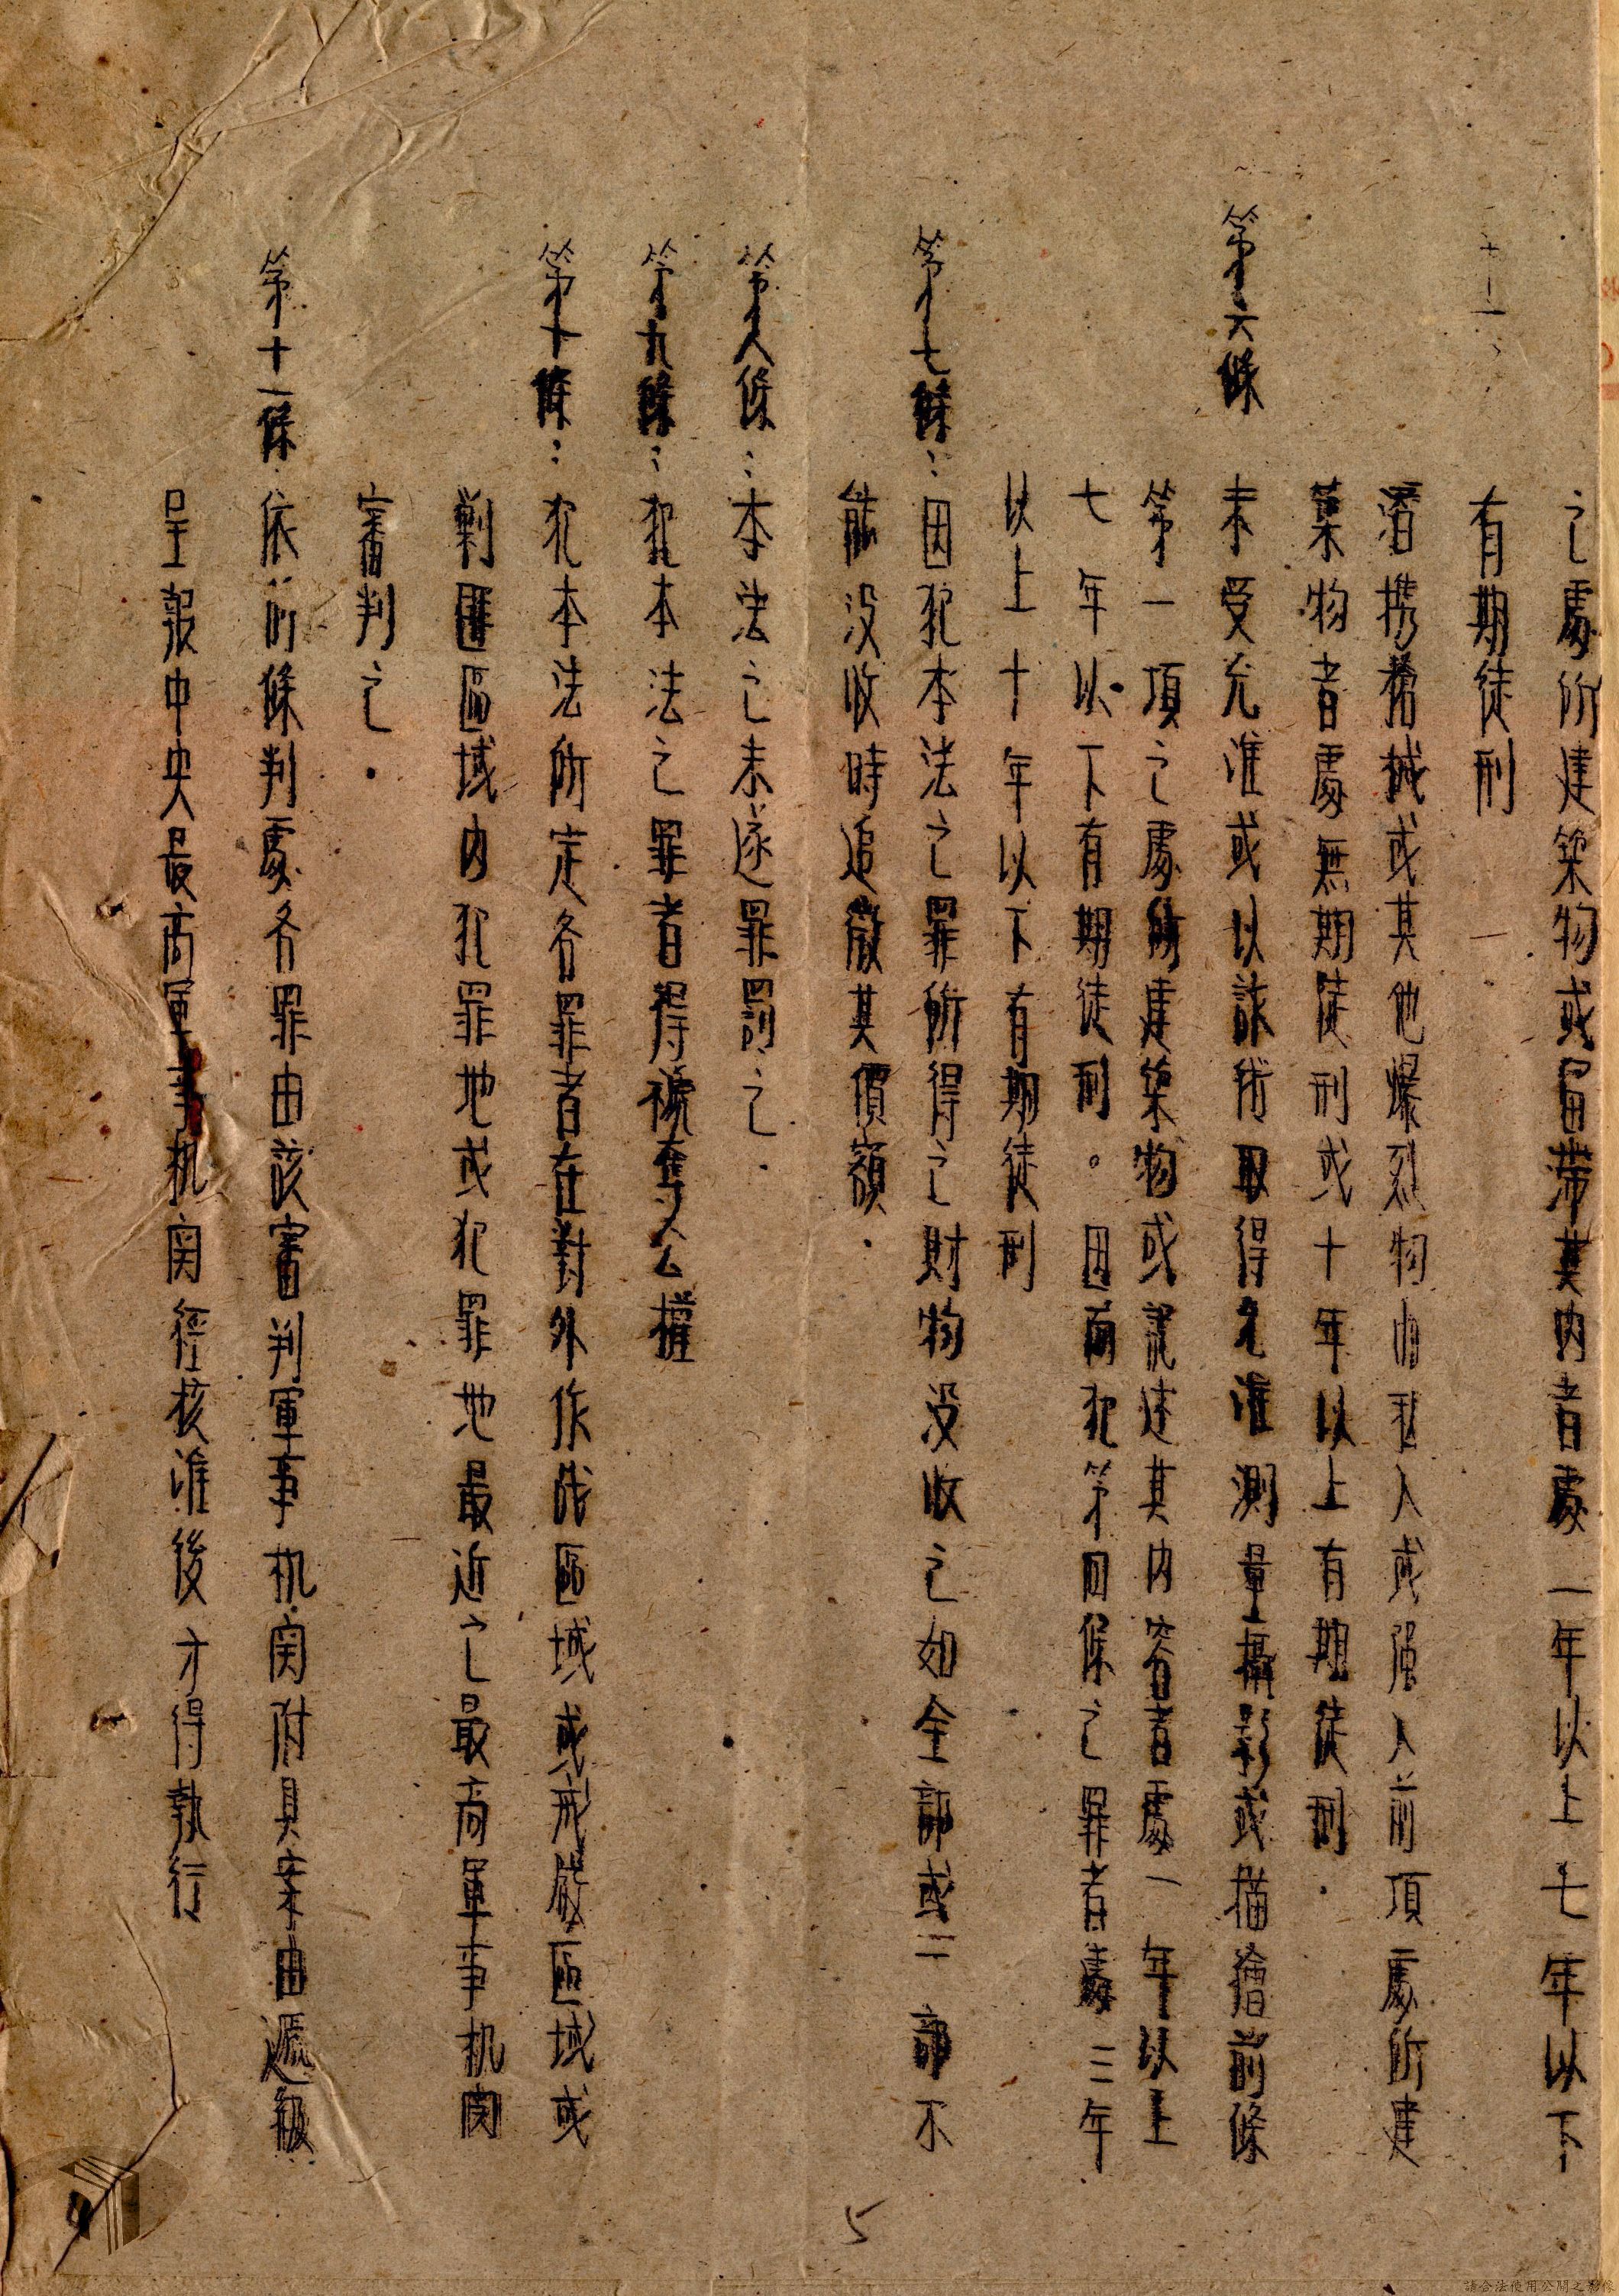 之處所建築物或留滯其內者處一年以上七年以下
有期徒刑
潛携槍械或其他爆烈物由私人或强入前項處所建
築物者處無期徒刑或十年以上有期徒刑．
第六條 未受允准或以詐術取得允准測量攝影或描繪前條
第一項之處所建築物或記述其內容者處一年以上
七年以下有期徒刑。因而犯第四條之罪者處三年
以上十年以下有期徒刑
第七條：因犯本法之罪所得之財物没收之如全部或一部不
能没收時追徵其價額．
第八條：本法之未遂罪罰之．
第九條：犯本法之罪者得褫奪公權
第十條：犯本法所定各罪者在對外作战區域或戒嚴區域或
剿匪區域內犯罪地或犯罪地最近之最高軍事机関
審判之．
第十一條：依前條判處各罪由該審判軍事机関附具案由遞級
呈報中央最高軍事机関經核准後才得執行
5
請合法使用公開之影像